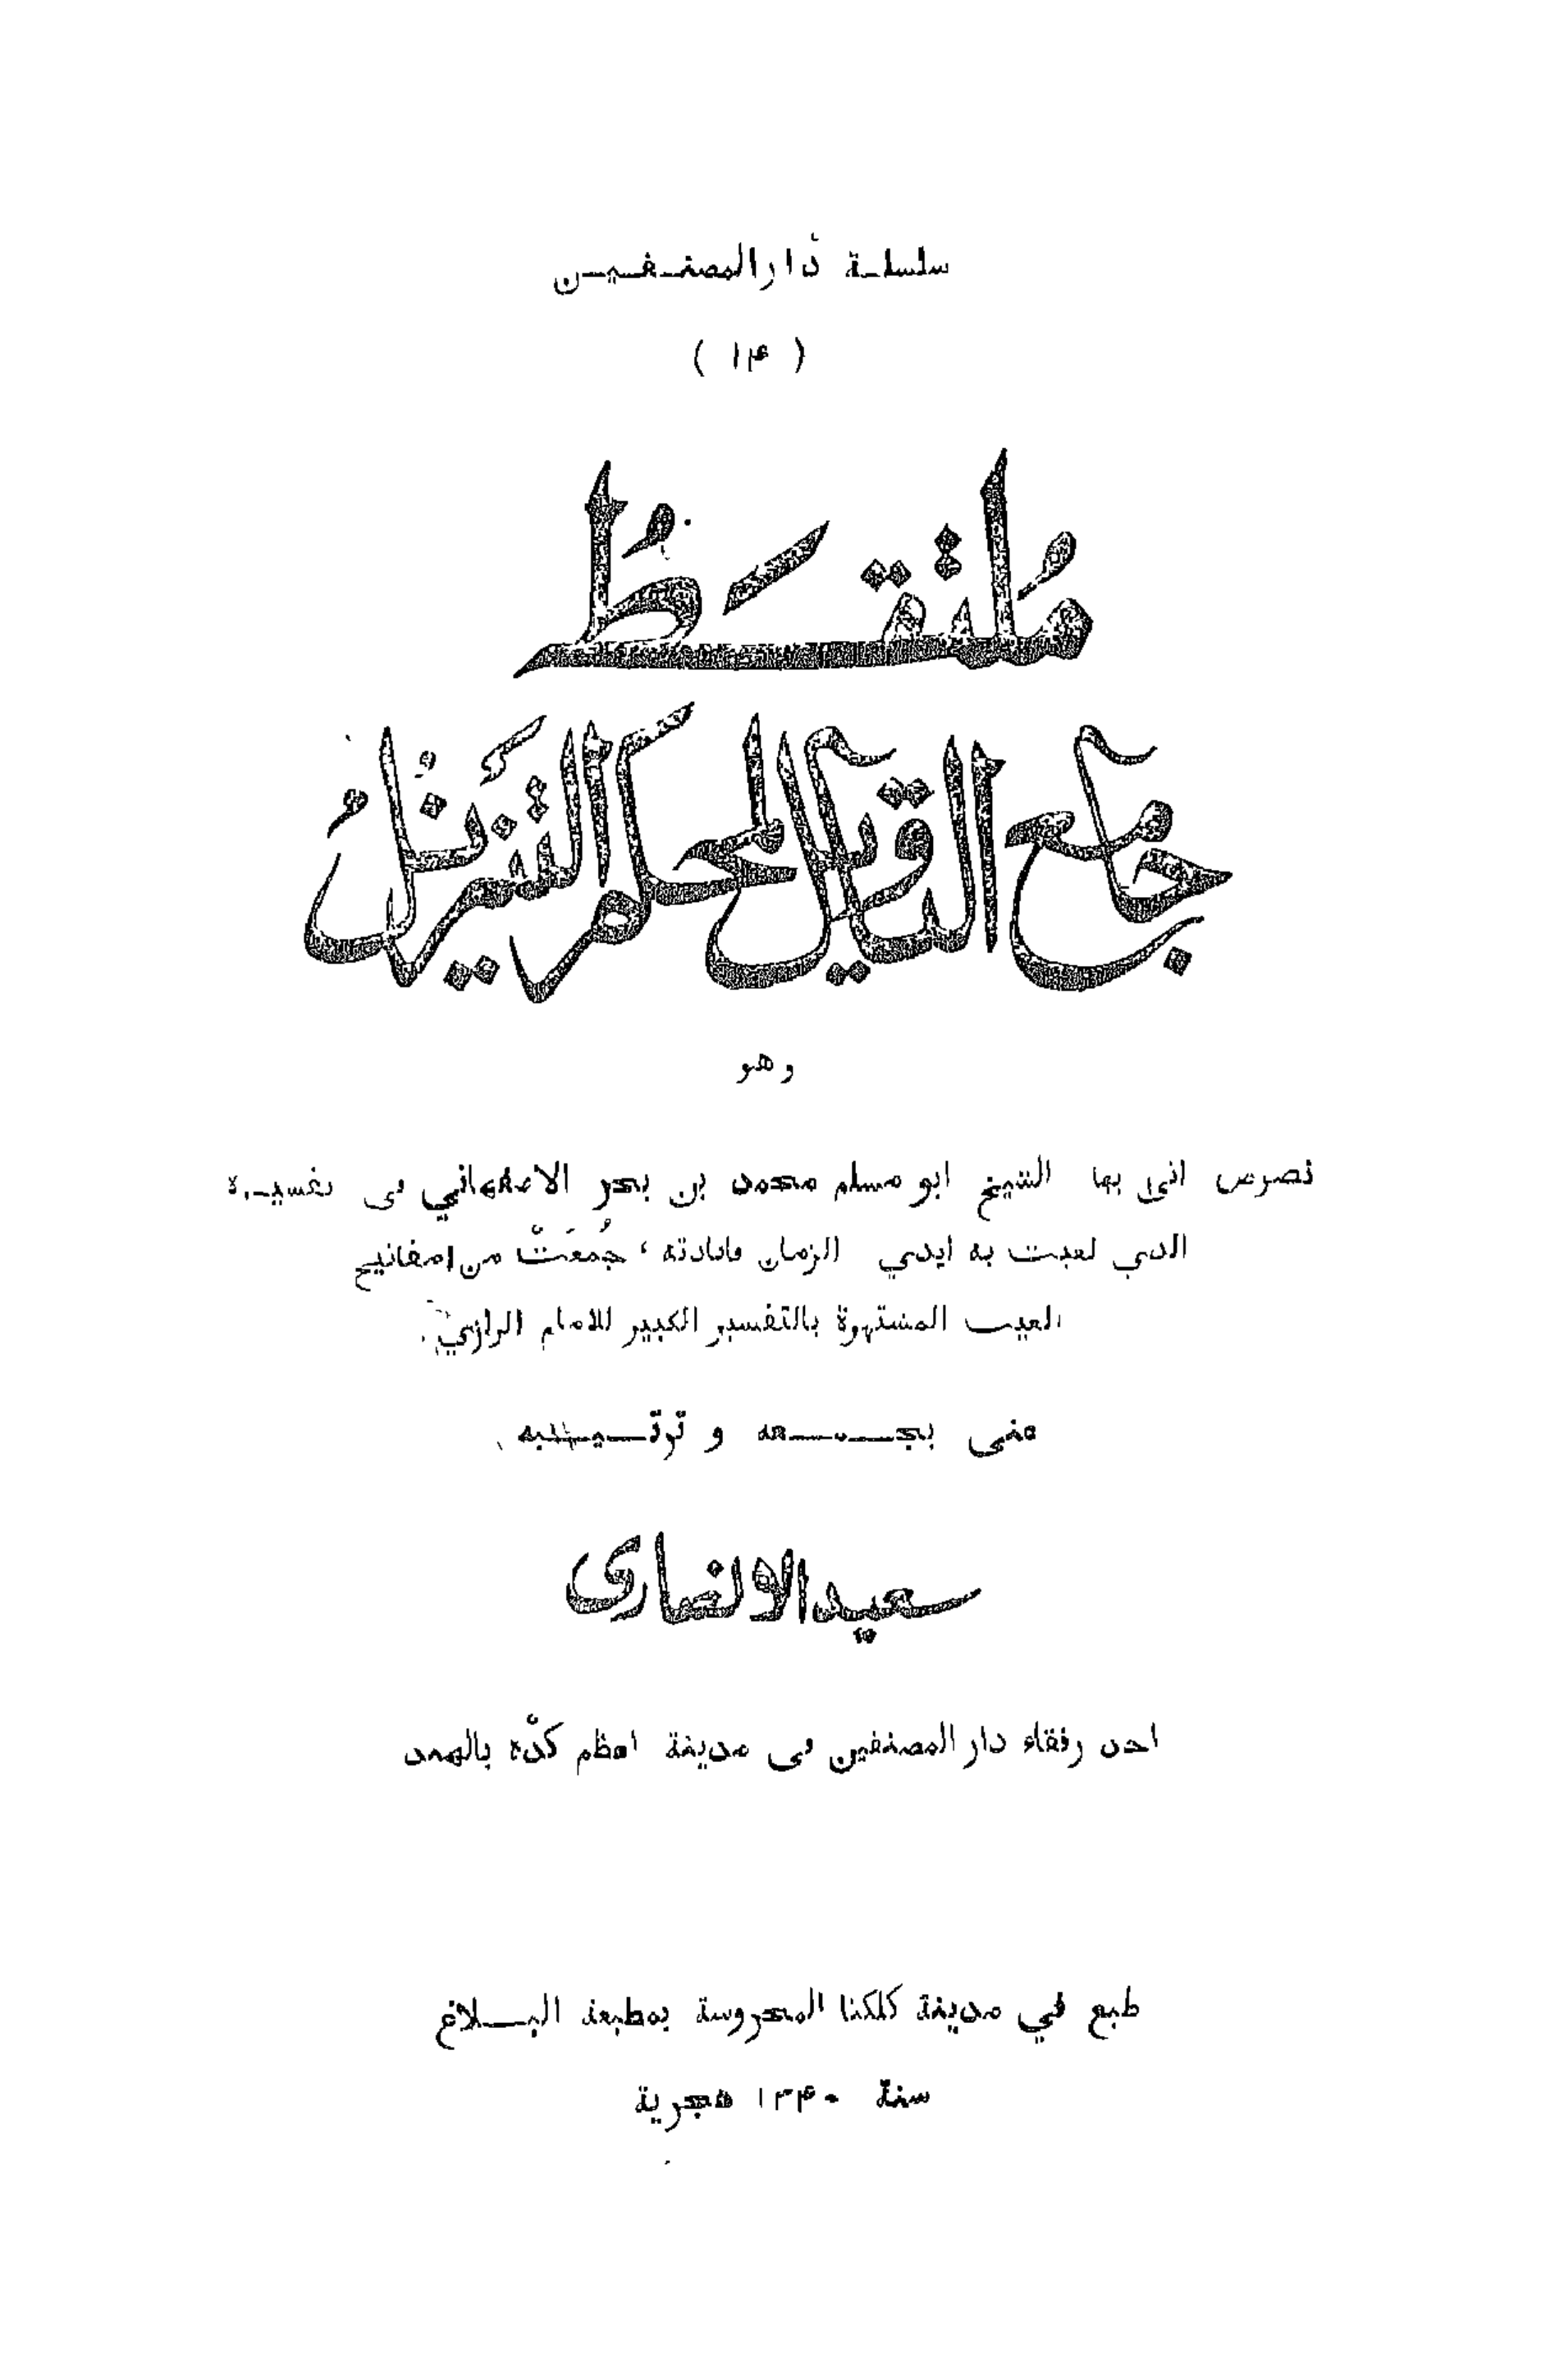 سلسلة دار المصنفين
( ۱۴ )
مُلتقَطُ
جامع التاویل لمحکم التنزیلُ
وهو
نصوص اتى بها الشيخ ابو مسلم محمد بن بحر الاصفهاني فى تفسيره
الذي لعبت به ايدي الزمان فابادته ، جُمعَتْ من مفاتيح
الغيب المشتهرة بالتفسير الكبير للامام الرازي
عنى بجمعه و ترتيبه
سعید الانصاری
احد رفقاء دار المصنفين فى مدينة اعظم كدّه بالهند
طبع في مدينة كلكتا المحروسة بمطبعة البلاغ
سنة ۱۳۴۰ هجرية